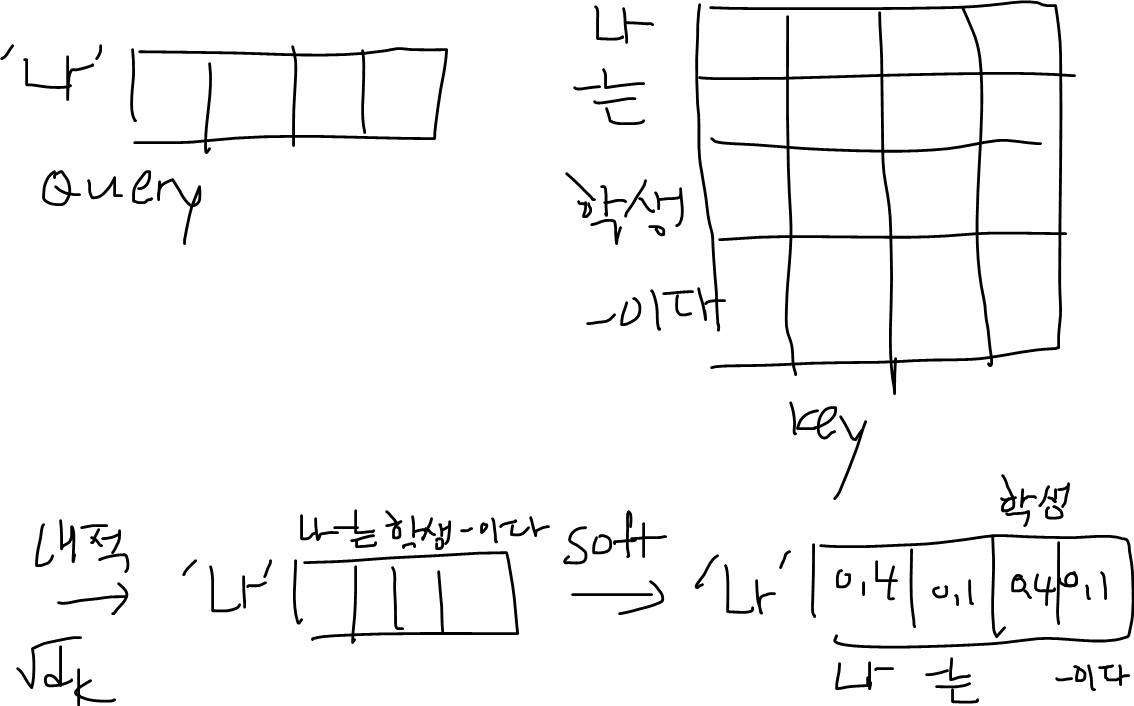 '나'
Query
나
는
학생
-이다
key
내적
√dk
나 는 학생 -이다
'나'
soft
학생
'나' 0.4 0.1 0.4 0.1
나 는 -이다